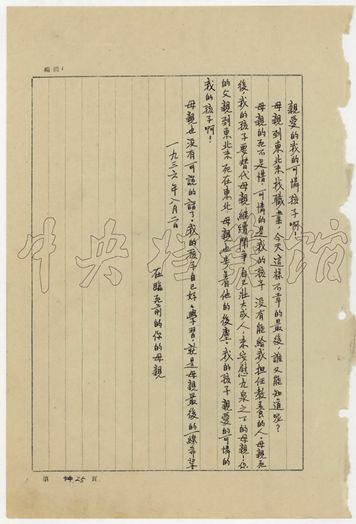 親愛的我的可憐孩子啊！
母親到東北來找職業，今天這樣不幸的最後，誰又能知道呢？
母親的死不足惜，可憐的是我的孩子，沒有能給我担任教養的人。母親死
後，我的孩子要替代母親繼續鬥爭，自己壯大成人，來安慰九泉之下的母親！你
的父親到東北來死在東北，母親也步着他的後塵。我的孩子，親愛的可憐的
我的孩子啊！
母親也沒有可說的話了，我的孩子自己好好學習，就是母親最後的一線希望
一九三六年八月二日
在臨死前的你的母親
第 25 頁
中央檔案館